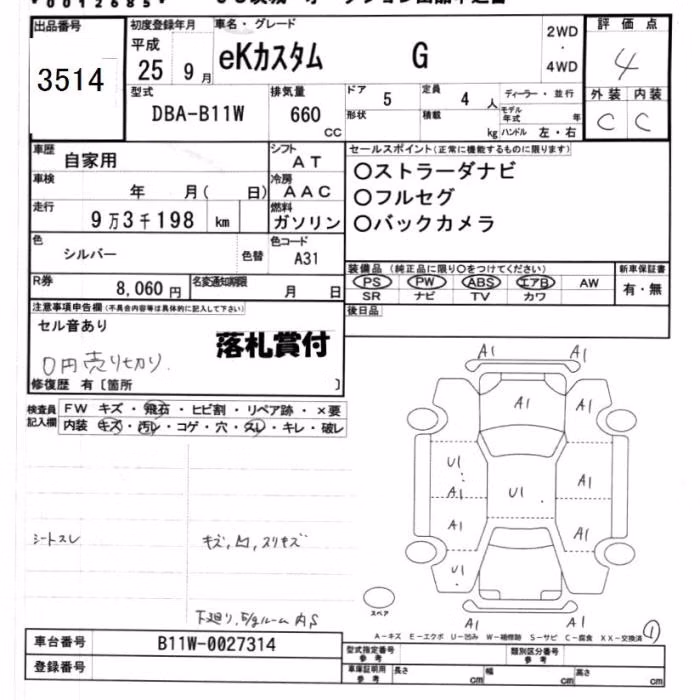 00012685
出品番号
3514
初度登録年月
平成
25 9月
車名・グレード
eKカスタム G
2WD
・
4WD
評価点
4
外装 内装
C C
型式
DBA-B11W
排気量
660
CC
ドア
5
形状
定員
4 人
積載
kg
ディーラー・並行
モデル年式 年
ハンドル 左・右
車歴
自家用
シフト
AT
車検
年 月( 日)
冷房
AAC
走行
9万3千198 km
燃料
ガソリン
セールスポイント(正常に機能するものに限ります)
〇ストラーダナビ
〇フルセグ
〇バックカメラ
色
シルバー
色替
色コード
A31
R券
8,060円
名変通知期限
月 日
装備品(純正品に限り〇をつけてください)
PS PW ABS エアB AW
SR ナビ TV カワ
新車保証書
有・無
後日品
注意事項申告欄(不具合内容等は具体的に記入して下さい)
セル音あり
0円売り切り.
落札賞付
修復歴 有〔箇所 〕
検査員
記入欄
FW キズ・飛石・ヒビ割・リペア跡・×要
内装 キズ・汚レ・コゲ・穴・スレ・キレ・破レ
シートスレ
キズ,凹,スリキズ
下廻り,E/gルーム内S
A1 A1
A1
U1
A1
A1
U1
U1
A1
A1
A1 A1
スペア
A-キズ E-エクボ U-凹み W-補修跡 S-サビ C-腐食 XX-交換済
1
車台番号
B11W-0027314
登録番号
型式指定番号
参考
類別区分番号
参考
車庫証明用
参考
長さ cm 幅 cm 高さ cm